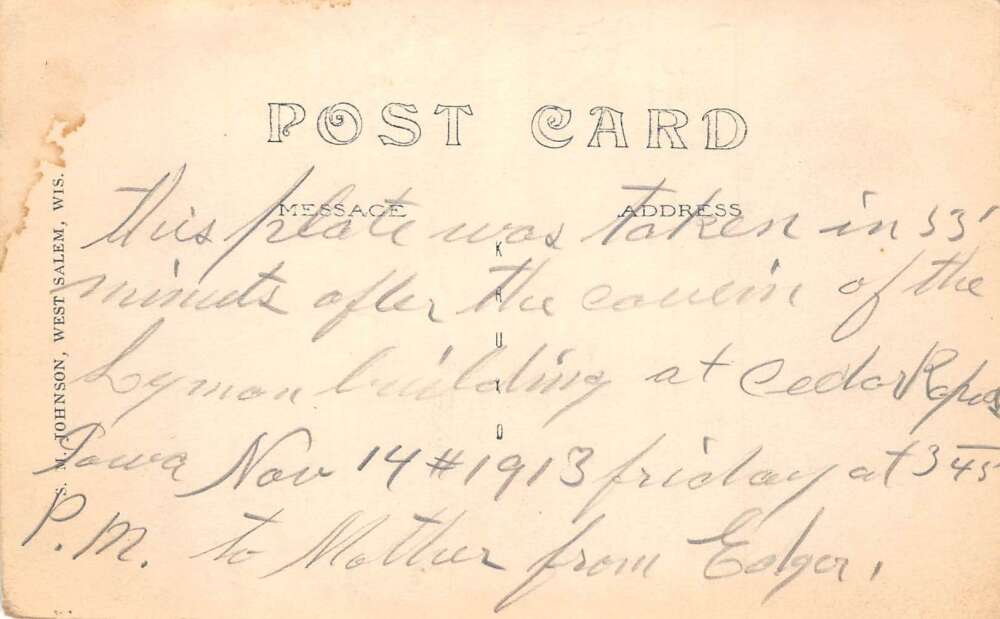 POST CARD
MESSAGE ADDRESS
this plate was taken in 53
minuts after the cavein of the
Lyman building at Cedar Rapids
Iowa Nov 14 # 1913 friday at 3 45
P. M. to Mother from Edger.
S. M. JOHNSON, WEST SALEM, WIS.